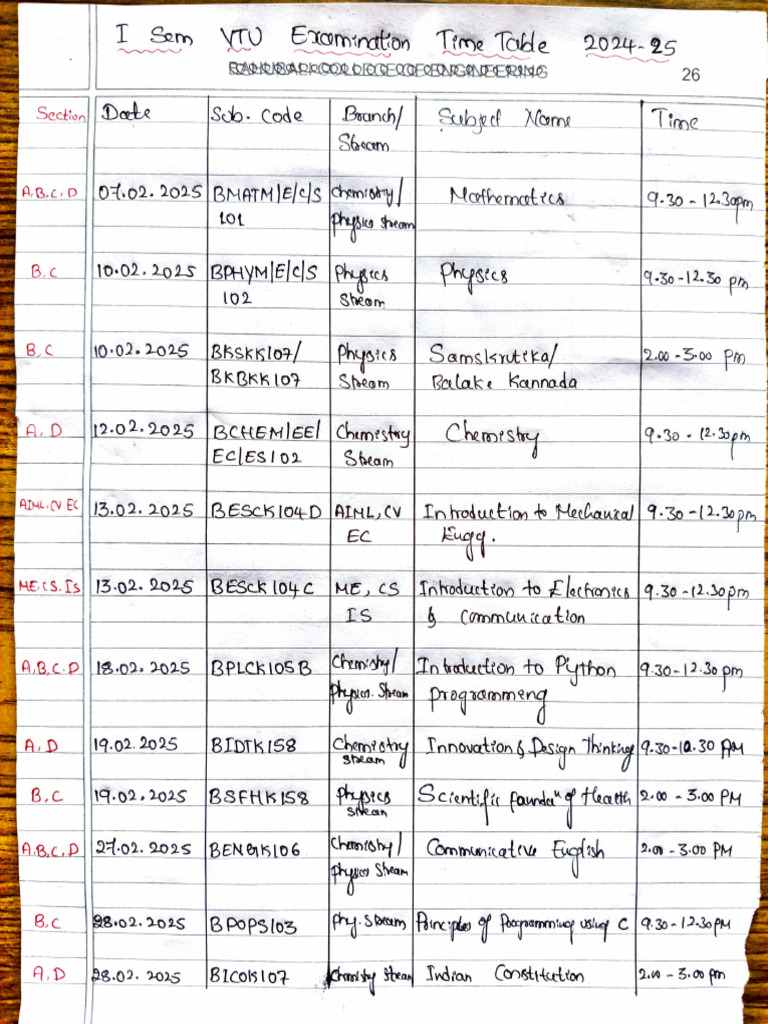 I Sem VTU Examination Time Table 2024-25
26
Section Date Sub. Code Branch/ Stream Subject Name Time
A,B,C,D 07.02.2025 BMATM/E/C/S 101 Chemistry/ physics stream Mathematics 9.30 - 12.30pm
B,C 10.02.2025 BPHYM/E/C/S 102 Physics Stream Physics 9.30-12.30 pm
B,C 10.02.2025 BKSKK107/ BKBKK107 Physics Stream Samskrutika/ Balake Kannada 2.00 - 5.00 Pm
A,D 12.02.2025 BCHEM/EE/ EC/ES102 Chemistry Stream Chemistry 9.30 - 12.30pm
AIML,CV EC 13.02.2025 BESCK104D AIML,CV EC Introduction to Mechanical Engg. 9.30 - 12.30pm
ME,CS,IS 13.02.2025 BESCK104C ME, CS IS Introduction to Electronics & Communication 9.30 - 12.30pm
A,B,C.D 18.02.2025 BPLCK105B Chemistry/ Physics. Stream Introduction to Python programmeng 9.30-12.30 pm
A,D 19.02.2025 BIDTK158 Chemistry stream Innovation & Design Thinking 9.30-10.30 AM
B,C 19.02.2025 BSFHK158 Physics stream Scientific founda^n of Health 2.00 - 3.00 PM
A,B,C,D 27.02.2025 BENGK106 Chemistry/ physics Stream Communicative English 2.00 - 3.00 PM
B,C 28.02.2025 BPOPS103 Phy. Stream Principles of Programming using C 9.30-12.30PM
A,D 28.02.2025 BICOK107 Chemistry Stream Indian Constitution 2.00 - 3.00 pm